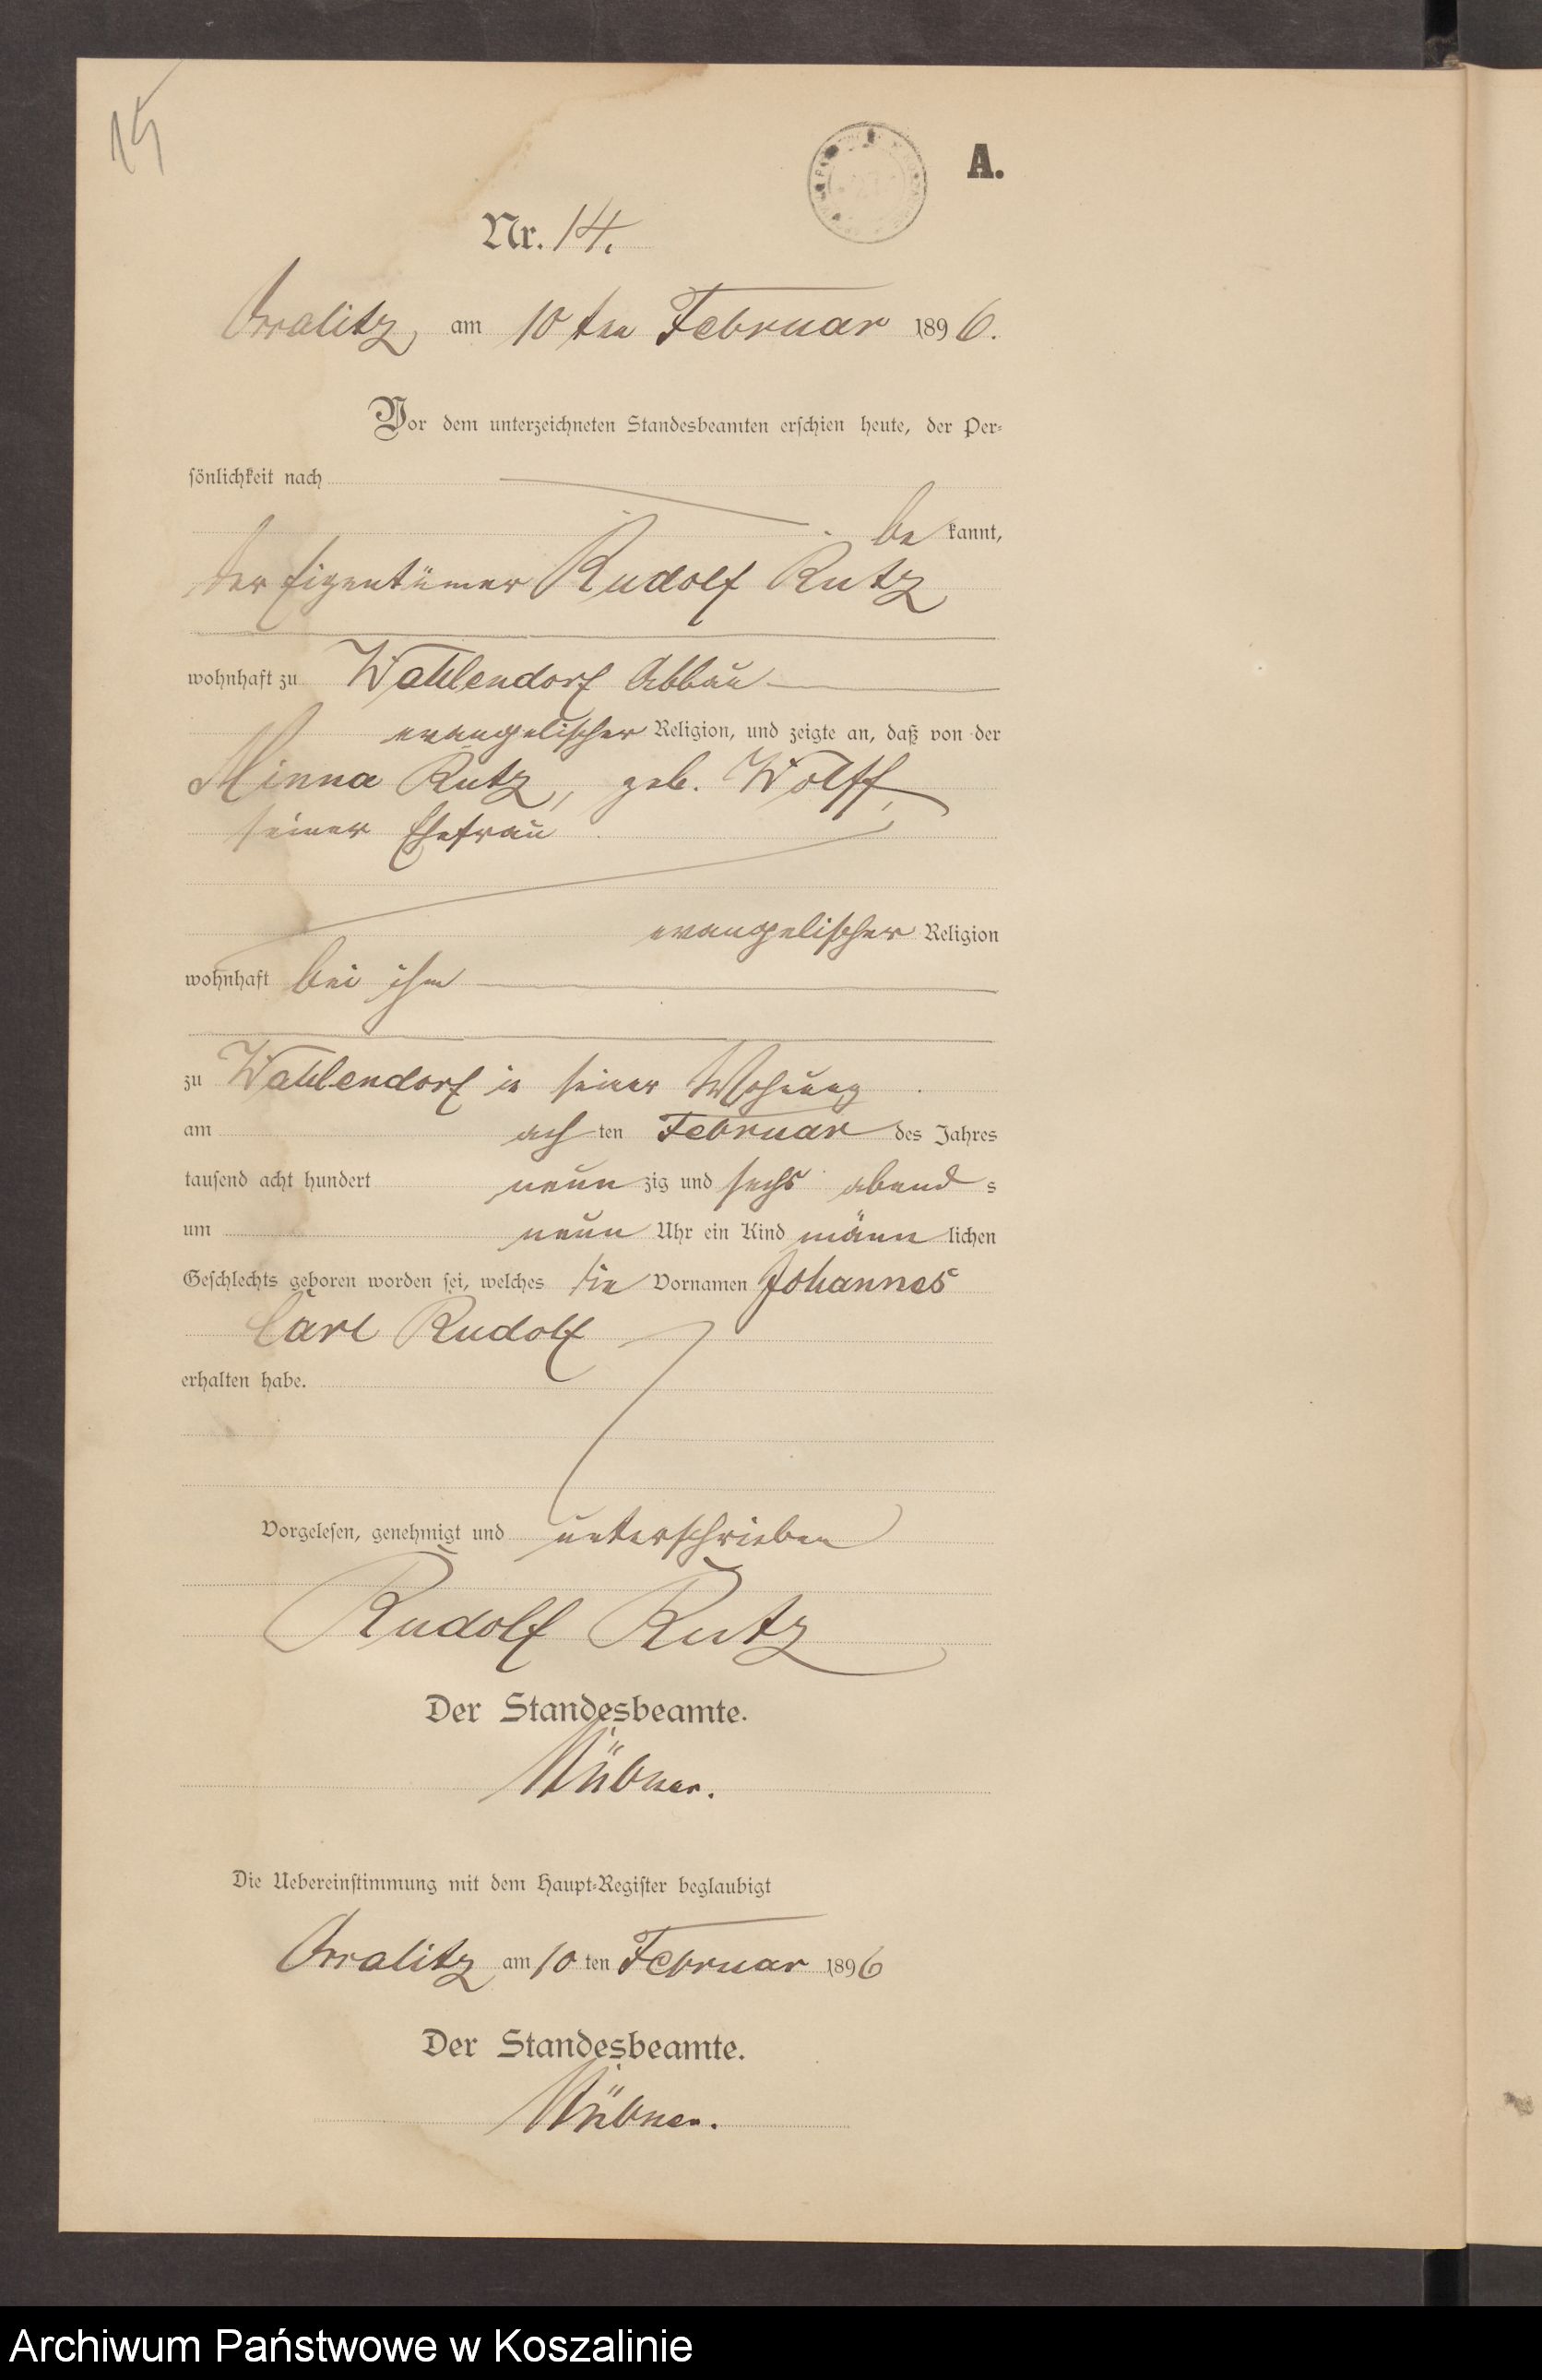 15
A.
Nr. 14.
am 10ten Februar 1896.
Vor dem unterzeichneten Standesbeamten erschien heute, der Per-
sönlichkeit nach
be kannt,
der Eigentümer Rudolf Rutz,
wohnhaft zu Wahlendorf Abbau
evangelischer Religion, und zeigte an, daß von der
Minna Rutz, geb. Wolff,
seiner Ehefrau
evangelischer Religion
wohnhaft bei ihm
zu Wahlendorf in seiner Wohnung
am ach ten Februar des Jahres
tausend acht hundert neun zig und sechs abend s
um neun Uhr ein Kind männ lichen
Geschlechts geboren worden sei, welches die Vornamen Johannes
Carl Rudolf
erhalten habe.
Vorgelesen, genehmigt und unterschrieben
Rudolf Rutz
Der Standesbeamte.
Die Uebereinstimmung mit dem Haupt-Register beglaubigt
am 10 ten Februar 1896
Der Standesbeamte.
Archiwum Państwowe w Koszalinie